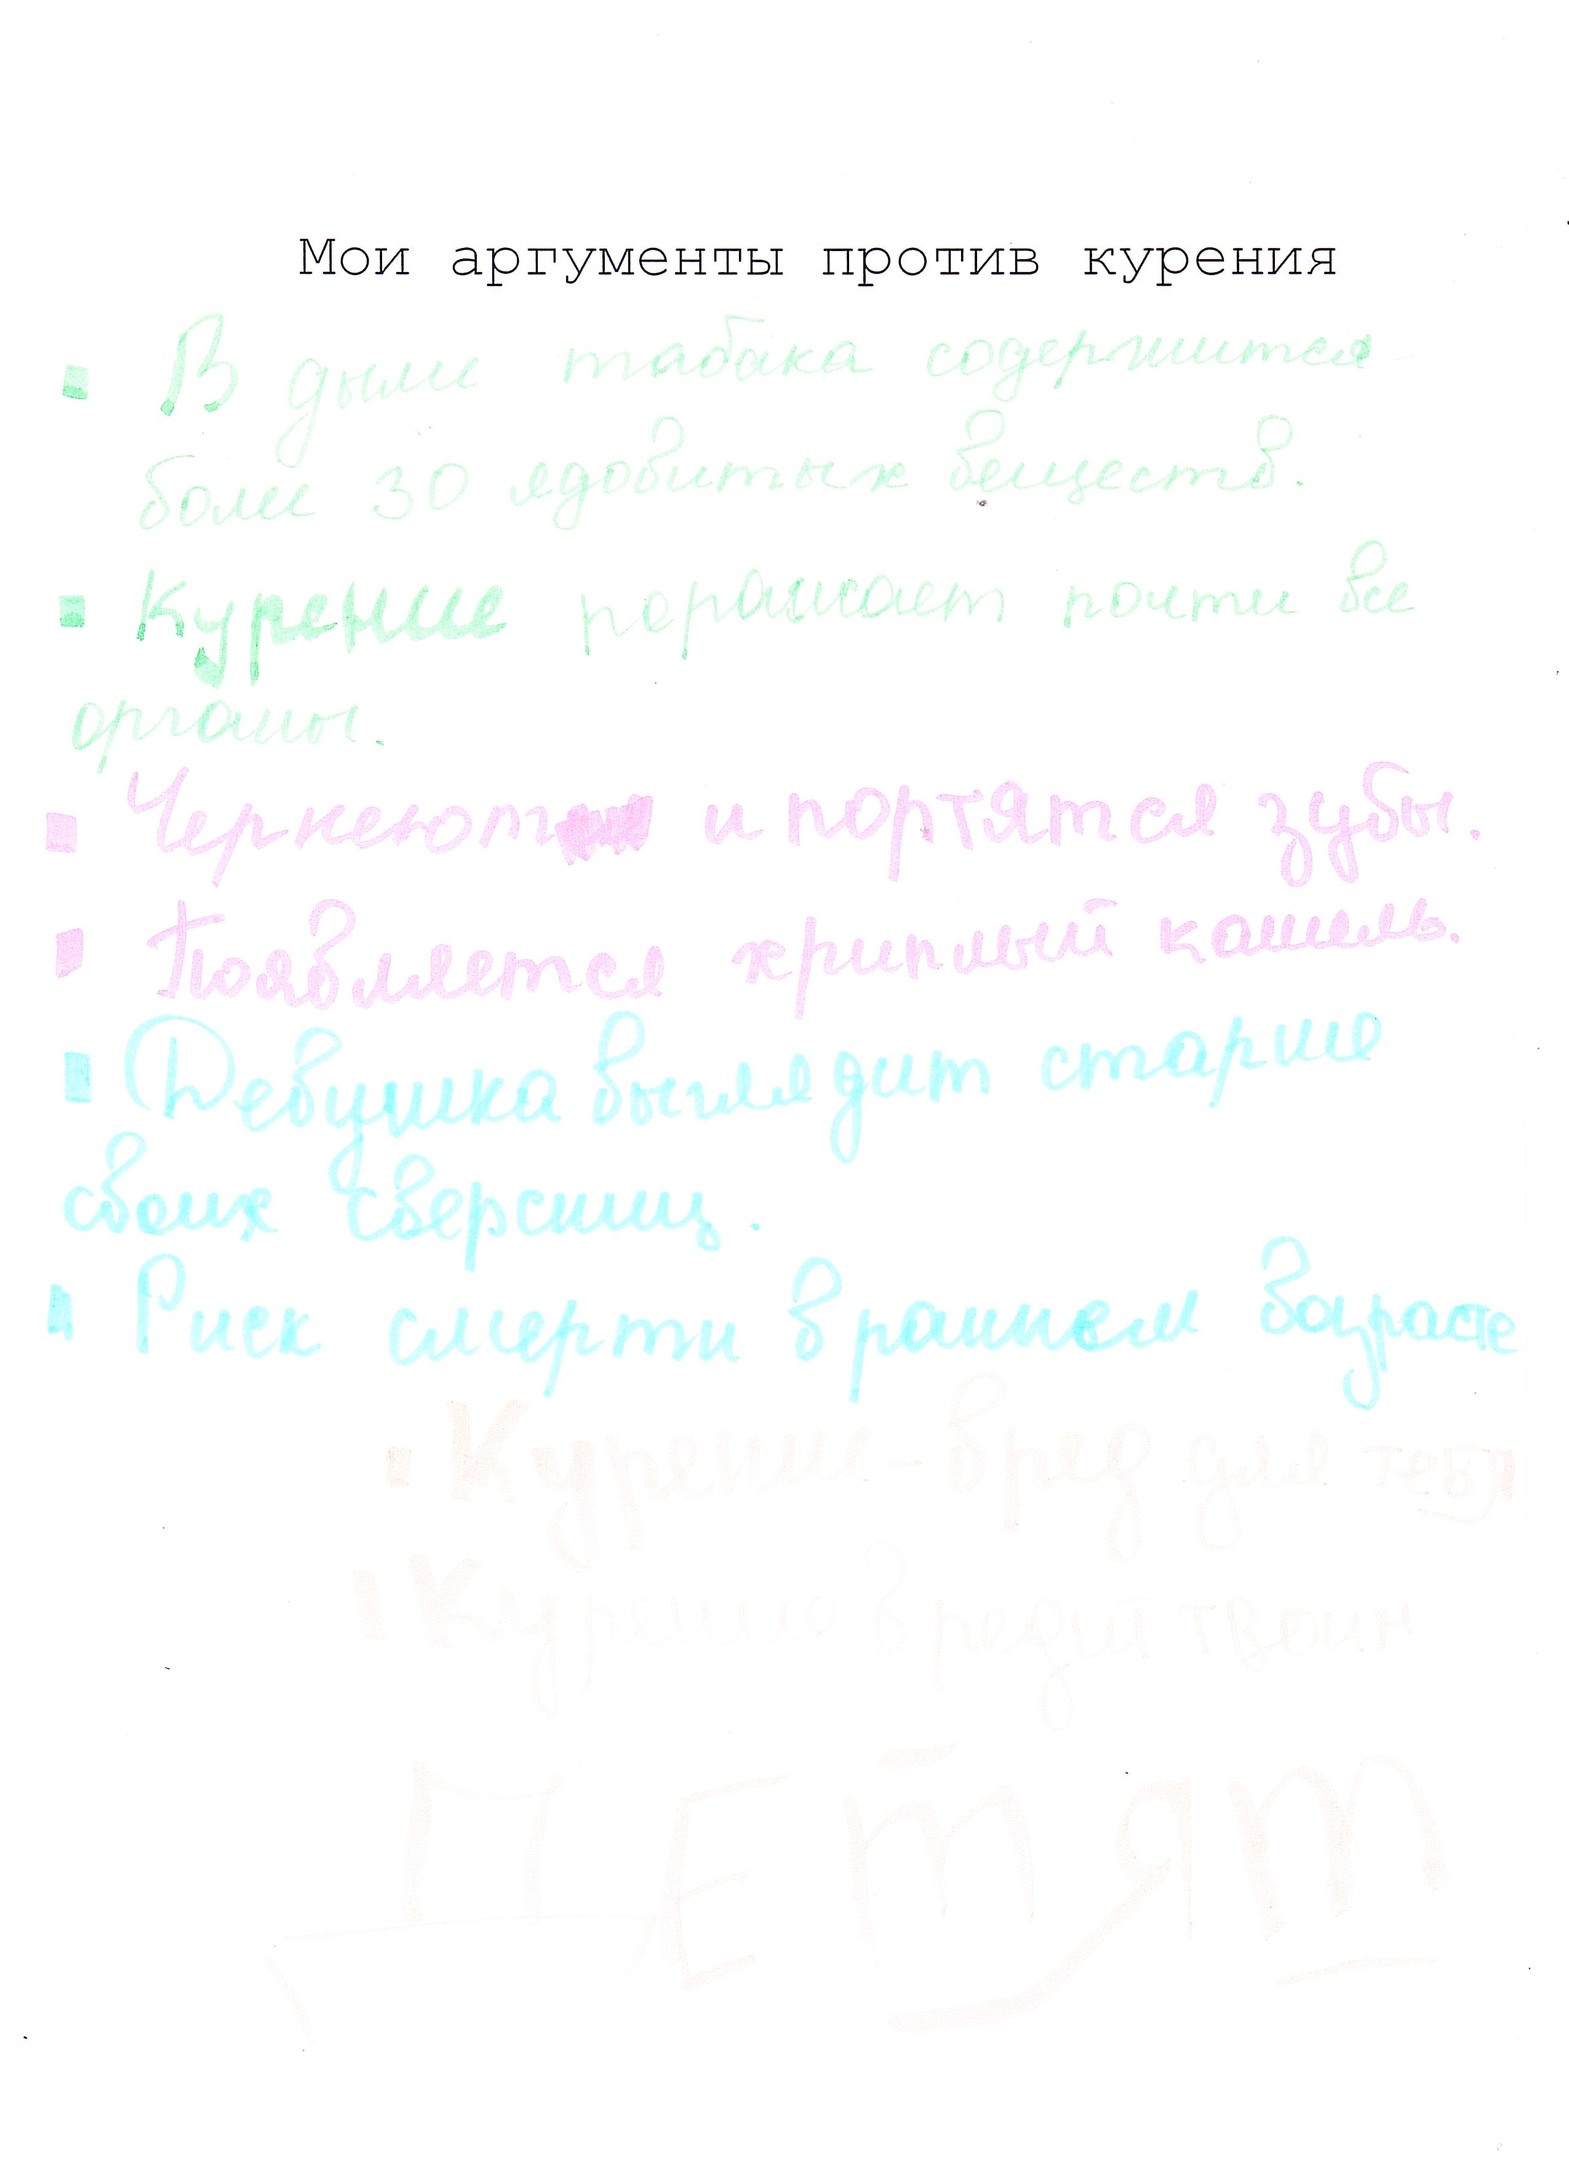 Мои аргументы против курения
▪ В дыме табака содержится
более 30 ядовитых веществ.
▪ Курение поражает почти все
органы.
▪ Чернеют и портятся зубы.
▪ Появляется хриплый кашель.
▪ Девушка выглядит старше
своих сверсниц.
▪ Риск смерти в раннем возрасте
▪ Курение - вред для тебя
▪ Курение вредит твоим
ДЕТЯМ